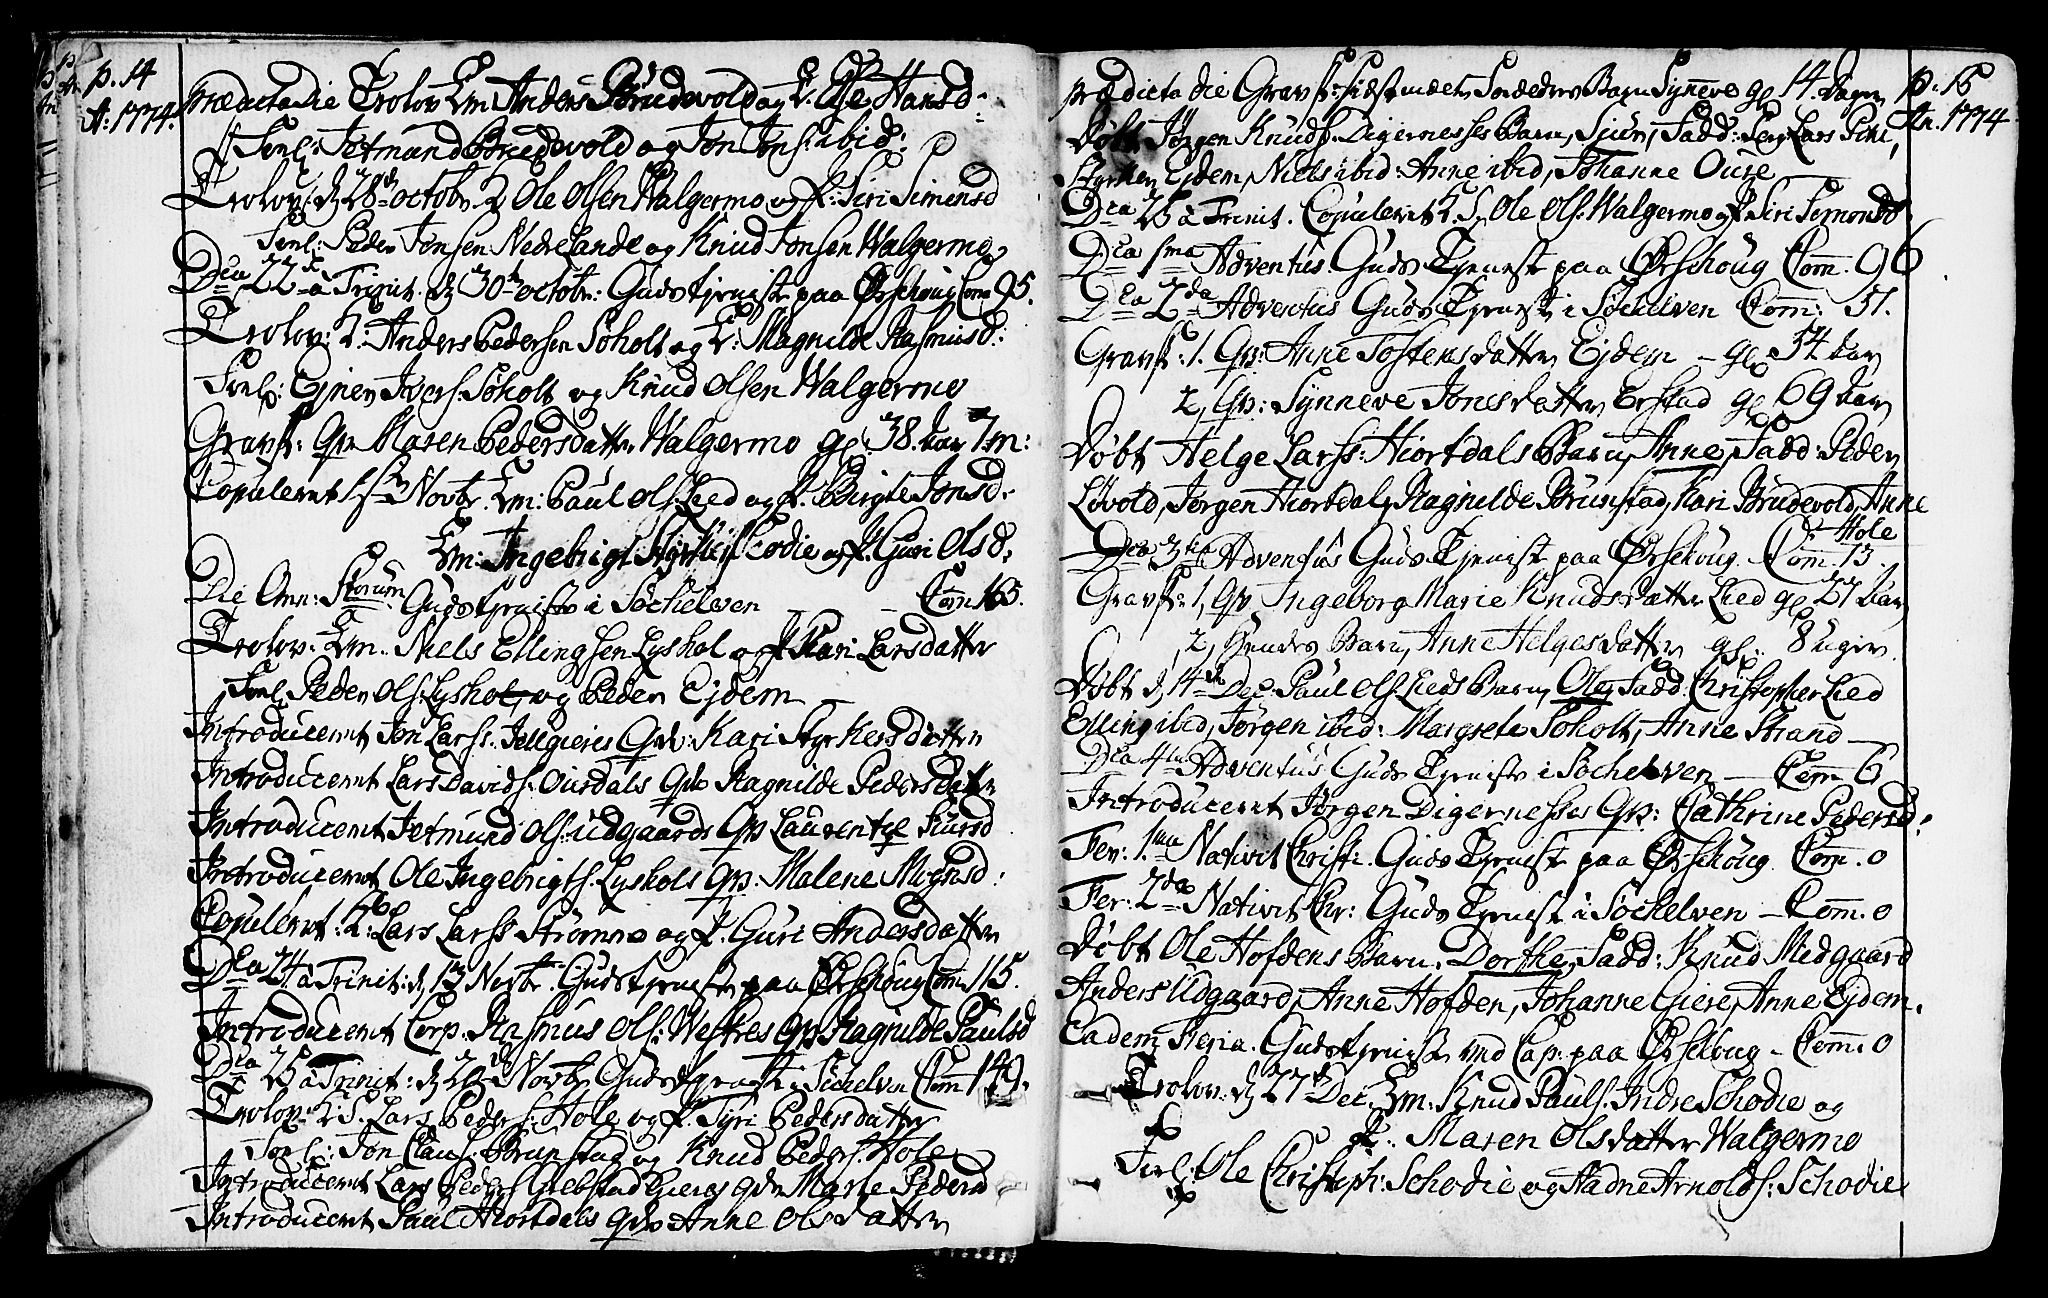 p. 14
A: 1774.
prædicta die Trolov: Em: Anders Brudevold og P. Else Hansd:
Forl: Jetmund Brudevold og Jon Jons: ibid:
Trolov: d 28de octobr. Ole Olsen Walgermo og P: Siri Simensd
Forl: Peder Jensen Nedrelande og Knud Jonsen Walgermo
Dca 22 a Trinit. d 30te octobr: Gudstjeniste paa Ørschoug Com 95.
Trolov: Anders Pedersen Søholt og P: Magnilde Rasmusd:
Forl: Ejner Ivers: Søholt og Knud Olsen Walgermo
Gravf: Qv: Maren Pedersdatter Walgermo gl. 38. aar 7 m:
Copuleret Novbr. Em: Paul Ols: Lied og P. Birgte Jonsd.
Em: Ingebrigt Schodie og P. Guri Olsd.
Die Omn: Storum Gudstjeniste i Søchelven Com 165.
Trolov: Em: Niels Ellingsen Lyshol og P Kari Larsdatter
Forl. Peder Ols: Lyshol, og Peder Ejdem
Introduceret Jon Larss: Jellgieres Qv: Kari Styrkersdatter
Introduceret Lars Davids: Ousdals Qv Ragnilde Pedersdatter
Introduceret Jetmund Ols: Udgaards Qv Laurentze Siursd
Introduceret Ole Ingebrigts. Lyshols Qv. Malene Mognsd:
Copuleret: Lars Larss Strømme og P. Guri Andersdatter
Dca 24 a Trinit: d 13 Novbr. Gudstjeniste paa Ørschoug Com 115.
Introduceret Corp. Rasmus Ols: Westres Qv Ragnilde Paulsd
Dca 25 a Trinit: d 20 Novbr Gudstjeniste i Søchelven Com 149.
Trolov: Lars Peders: Hole og P. Syri Pedersdatter
Forl: Jon Claus: Brunstad og Knud Peders: Hole
Introduceret Lars Peders Giebstad Gieres qv Marie Pedersd
Introduceret Paul Hiortdals qv Anne Olsdatter
prædicta die Gravf: Barn Synneve gl 14. dage
Døbt Jørgen Knuds. Digernesses Barn, Siur, Fadd: Lars
Styrker Ejdem, Niels ibid: Anne ibid, Johanne Ouse
Dca 26 a Trinit. Copuleret Ole Ols: Walgermo og P. Siri Semonsd
Dca 1ma Adventus Guds Tjeneste paa Ørschoug Com. 96
Dca 2da Adventus Guds Tjenest i Søchelven Com: 51.
Gravf: 1. Qv: Anne Tostensdatter Ejdem – gl 54 aar
2, Qv: Synneve Jonesdatter Erstad gl 69 aar
Døbt Helge Larss: Hiortdals Barn, Anne, Fadd: Peder
Løvold, Jørgen Hiortdal, Ragnilde Brunstad, Kari Brudevold, Anne
Hole
Dca 3tia Adventus Guds Tjeniste paa Ørschoug. Com. 13.
Gravf: 1, Qv Ingeborg Marie Knudsdatter Lied gl 27 aar
2, Hendes Barn, Anne Helgesdatter gl. 8 uger
Døbt d 14de Dec. Paul Ols. Lieds Barn, Ole, Fadd: Christopher Lied
Elling ibid, Jørgen ibid: Margrete Søholt, Anne Strand
Dca 4ta Adventus Guds Tjeniste i Søchelven – Com. 6
Introduceret Jørgen Digernesses Qv: Cathrine Pedersd.
Fer: 1ma Nativit Christi. Guds Tjenest paa Ørschoug Com. 0
Fer: 2da Nativit Chr: Guds Tjenest i Søchelven – Com. 0
Døbt Ole Hofdens Barn. Dorthe, Fadd: Knud Midgaard
Anders Udgaard, Anne Hofden, Johanne Giere, Anne Ejdem.
Eadem Feria. Gudstjenist ved Cap. paa Ørschoug – Com. 0
Trolov: d 27de Dec. Em: Knud Pauls. Indre Schodie og
P. Maren Olsdatter Walgermo
Forl: Ole Christoph: Schodie og Aadne Arnolds: Schodie
p. 16
An. 1774